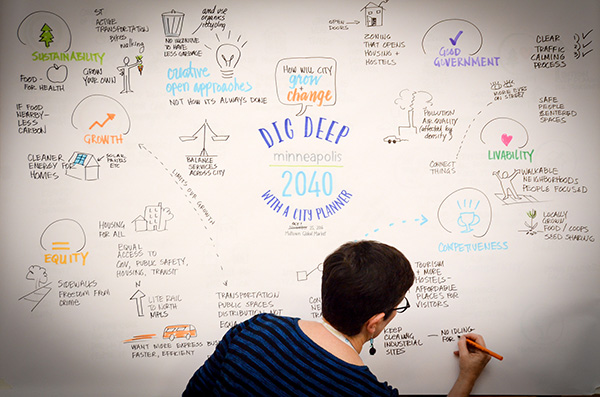 ST
ACTIVE
TRANSPORTATION
Bikes
walking
SUSTAINABILITY
FOOD - FOR HEALTH
GROW
YOUR OWN
IF FOOD
NEARBY -
LESS
CARBON
GROWTH
CLEANER
ENERGY FOR
HOMES
SOLAR
ETC
NO INCENTIVE
TO HAVE
LESS GARBAGE
and use
organics
recycling
creative
open approaches
NOT HOW ITS ALWAYS DONE
BALANCE
SERVICES
ACROSS CITY
HOW WILL CITY
grow
+
change
DIG DEEP
minneapolis
2040
WITH A CITY PLANNER
OPEN
DOORS
ZONING
ZONING
THAT OPENS
HOUSING +
HOSTELS
GOOD
GOVERNMENT
CLEAR
TRAFFIC
CALMING
PROCESS
1
2
3
POLLUTION
AIR QUALITY
(affected by
density)
CONNECT
THINGS
MORE EYES
ON STREET
SAFE
PEOPLE
CENTERED
SPACES
LIVABILITY
WALKABLE
NEIGHBORHOODS
PEOPLE FOCUSED
LOCALLY
GROWN
FOOD / COOPS
SEED SHARING
COMPETIVENESS
TOURISM
+ MORE
HOSTELS -
AFFORDABLE
PLACES FOR
VISITORS
KEEP
CLEANING
INDUSTRIAL
SITES
- NO IDLING
FOR
HOUSING
FOR ALL
EQUITY
EQUAL
ACCESS TO
GOV, PUBLIC SAFETY,
HOUSING, TRANSIT
SIDEWALKS
FREEDOM FROM
CRIME
LITE RAIL
TO NORTH
MPLS
WANT MORE EXPRESS
FASTER, EFFICIENT
TRANSPORTATION
PUBLIC SPACES
DISTRIBUTION NOT